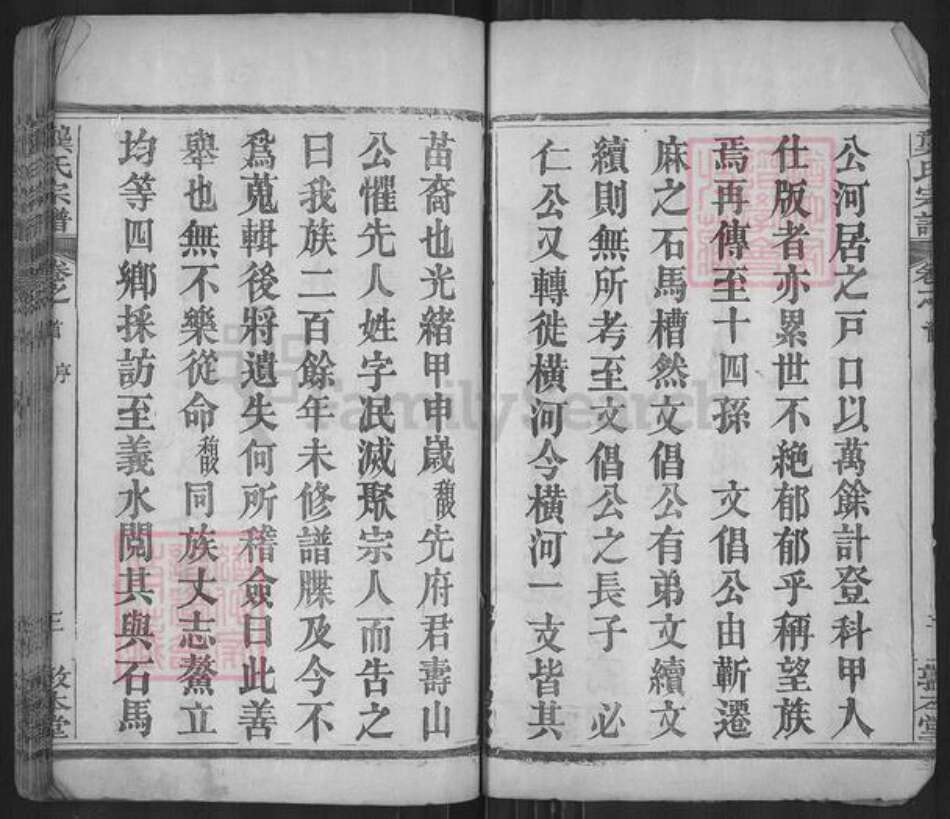 公河居之戸口以萬餘計登科甲人
仕版者亦累世不絶郁郁乎稱望族
焉再傳至十四孫 文倡公由蘄遷
麻之石馬槽然文倡公有弟文續文
續則無所考至文倡公之長子 必
仁公又轉徙横河今横河一支皆其
苗裔也光緒甲申歲馥先府君壽山
公懼先人姓字泯滅聚宗人而告之
曰我族二百餘年未修譜牒及今不
爲蒐輯後將遺失何所稽僉曰此善
舉也無不樂從命馥同族丈志鰲立
均等四鄉採訪至義水閱其與石馬
龔氏宗譜 卷之首 序 三 敦本堂
FamilySearch